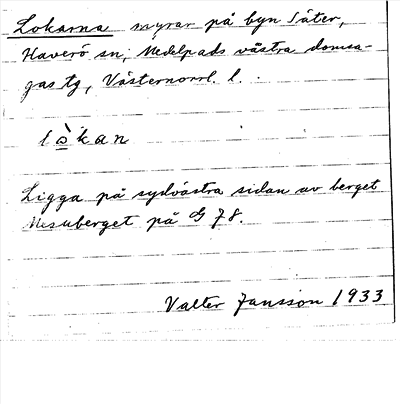 Lokarna myrar på byn Säter,
Haverö sn, Medelpads västra domsa-
gas tg, Västernorrl. l.
lò̲kan
Ligga på sydvästra sidan av berget
Mesuberget på G 78.
Valter Jansson 1933